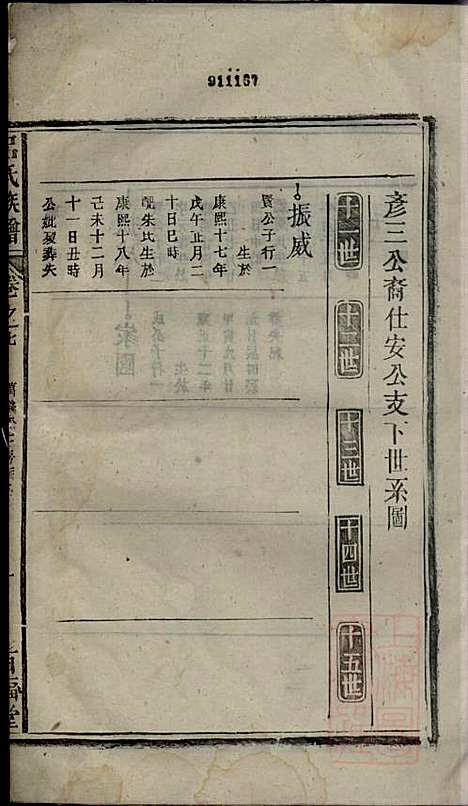 911167
彥三公裔仕安公支下世系圖
十一世
十二世
十三世
十四世
十五世
振威
賢公子行一
生於
康熙十七年
戊午正月二
十日巳時
配朱氏生於
康熙十八年
己未十二月
十一日丑時
公妣歿葬失
氏族譜
卷之
堂